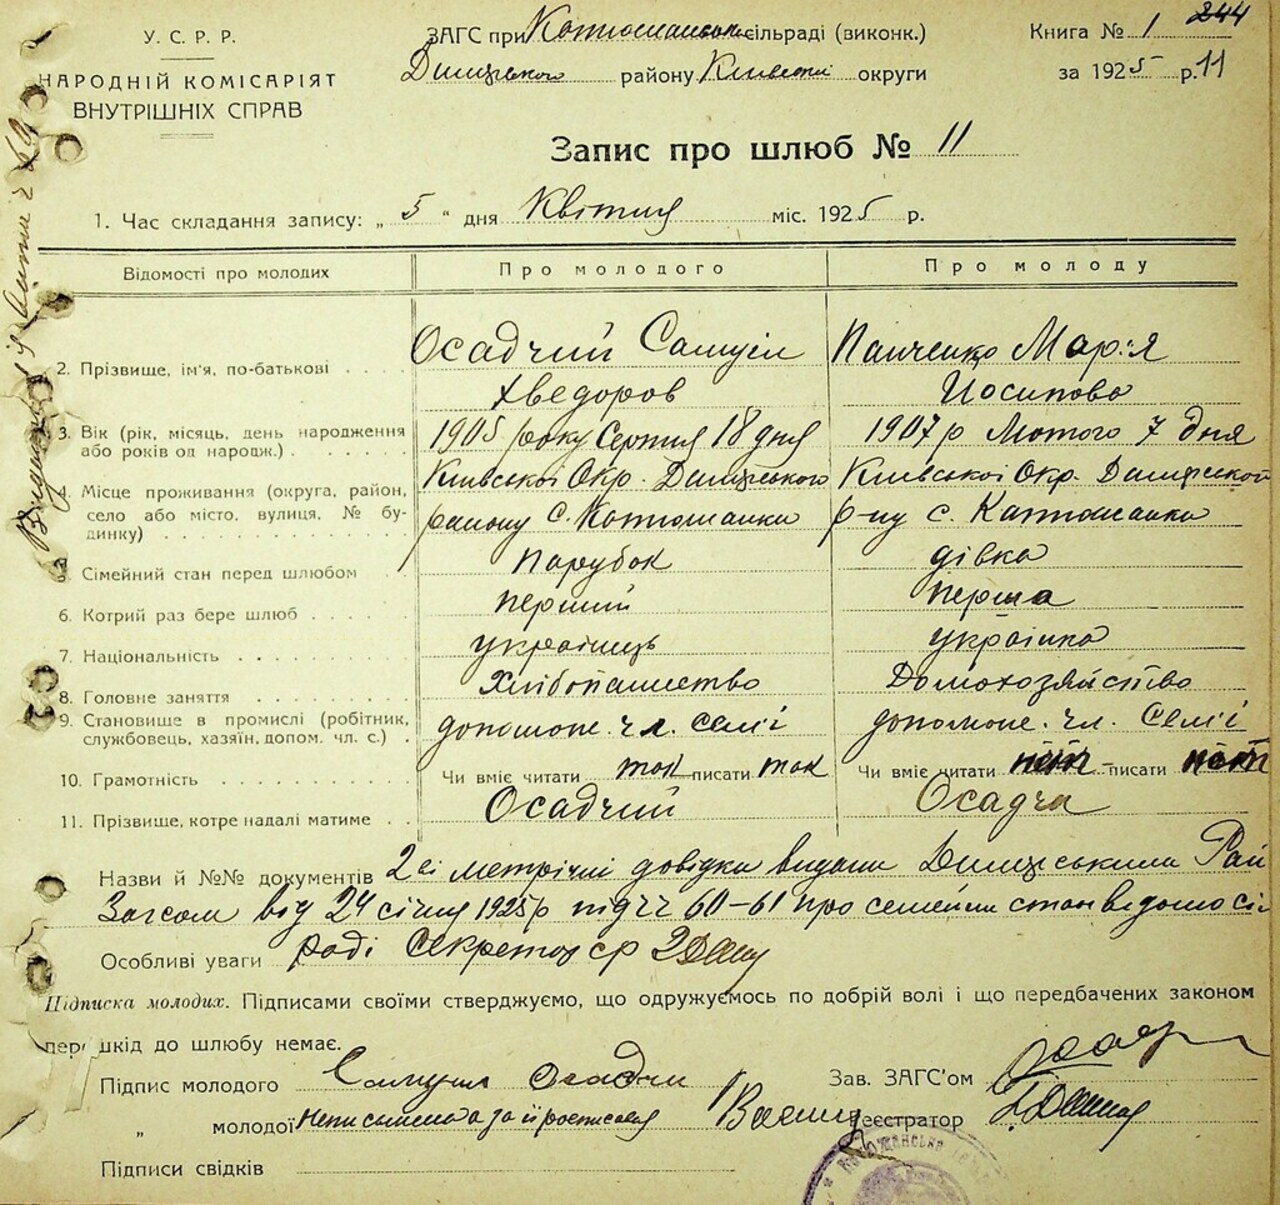 У. С. Р. Р.
НАРОДНІЙ КОМІСАРІЯТ
ВНУТРІШНІХ СПРАВ
ЗАГС при Катюжанськ. сільраді (виконк.)
Димерського району Київської округи
Книга № 1 244
за 1925 р. 11
Запис про шлюб № 11
1. Час складання запису: „ 5 “ дня Квітня міс. 1925 р.
Відомості про молодих Про молодого Про молоду
Осадчий Самуіл Панченко Марія
2. Прізвище, ім'я, по-батькові
Хведоров Йосипова
3. Вік (рік, місяць, день народження 1905 року Серпня 18 дня 1907 р Лютого 7 дня
або років од народж.)
4. Місце проживання (округа, район, Київської Окр. Димерського Київської Окр. Димерского
село або місто, вулиця, № бу- району с. Катюжанка р-ну с. Катюжанка
динку)
5. Сімейний стан перед шлюбом парубок дівка
6. Котрий раз бере шлюб перший перша
7. Національність українець українка
8. Головне заняття Хлібопашество Домохозяйство
9. Становище в промислі (робітник, допомож. чл. семії допомож. чл. семії
службовець, хазяїн, допом. чл. с.)
10. Грамотність Чи вміє читати так писати так Чи вміє читати нет писати нет
11. Прізвище, котре надалі матиме Осадчий Осадча
Назви й №№ документів 2 ві метрічні довідки видани Димерським Рай
Загсом від 24 січня 1925 р під чч 60-61 про семейни стан ведомо сі-
Особливі уваги раді Секретар ср
Підписка молодих. Підписами своїми стверджуємо, що одружуємось по добрій волі і що передбачених законом
перешкід до шлюбу немає.
Підпис молодого Самуил Осадчи Зав. ЗАГС'ом
„ молодої Неписьмена а за її росписався Реєстратор
Підписи свідків